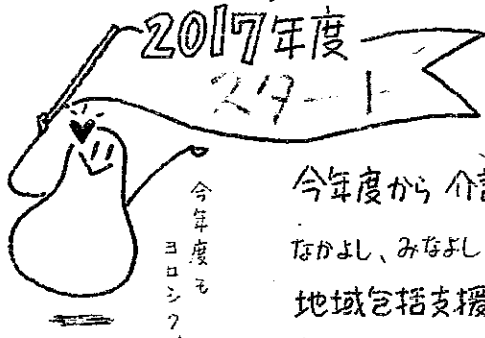 2017年度
スタート
今年度も
ヨロシク
今年度から 介
なかよし、みなよし
地域包括支援